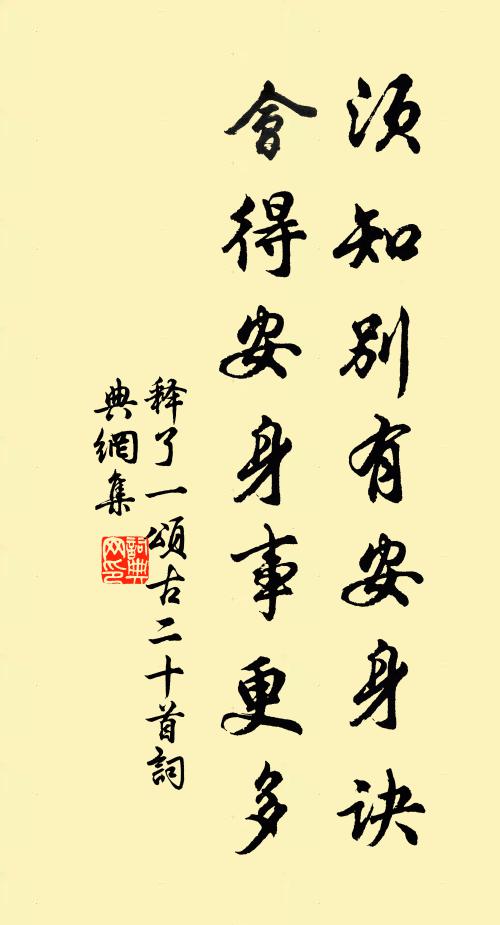 须知别有安身诀
會得安身事更多
释了一頌古二十首詞
典網集
詞典網印